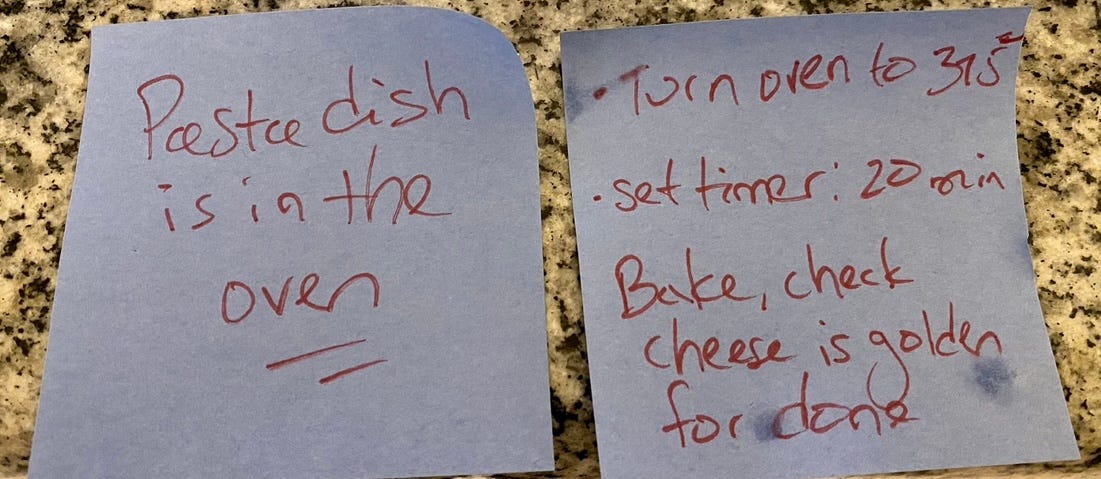 Pasta dish
is in the
oven
• Turn oven to 375°
• set timer: 20 min
Bake, check
cheese is golden
for done